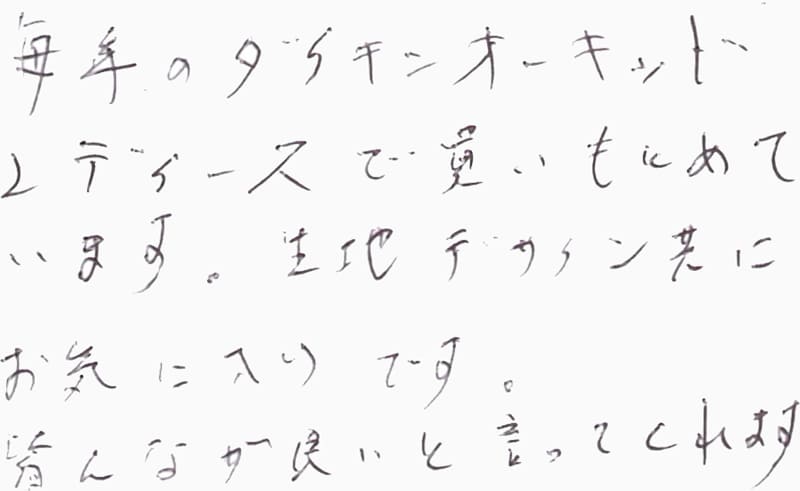 毎年のダイキンオーキッド
レディースで買いもとめて
います。生地デザイン共に
お気に入りです。
皆んなが良いと言ってくれます